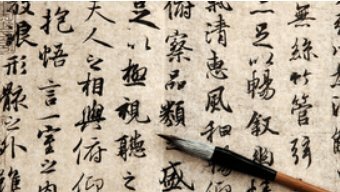 無絲竹管弦
足以暢敘幽
氣清惠風和暢仰
俯察品類盛
足以極視聽之
夫人之相與俯仰
抱悟言一室之內
放浪形骸之外雖